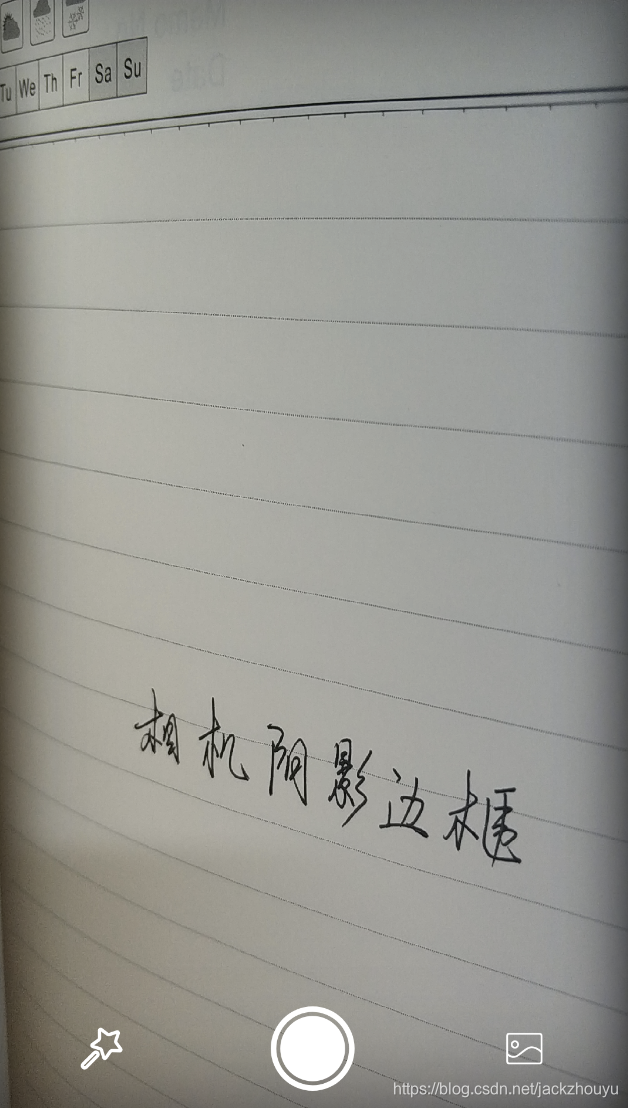 Memo No
Date
Tu We Th Fr Sa Su
相机阴影边框
https://blog.csdn.net/jackzhouyu